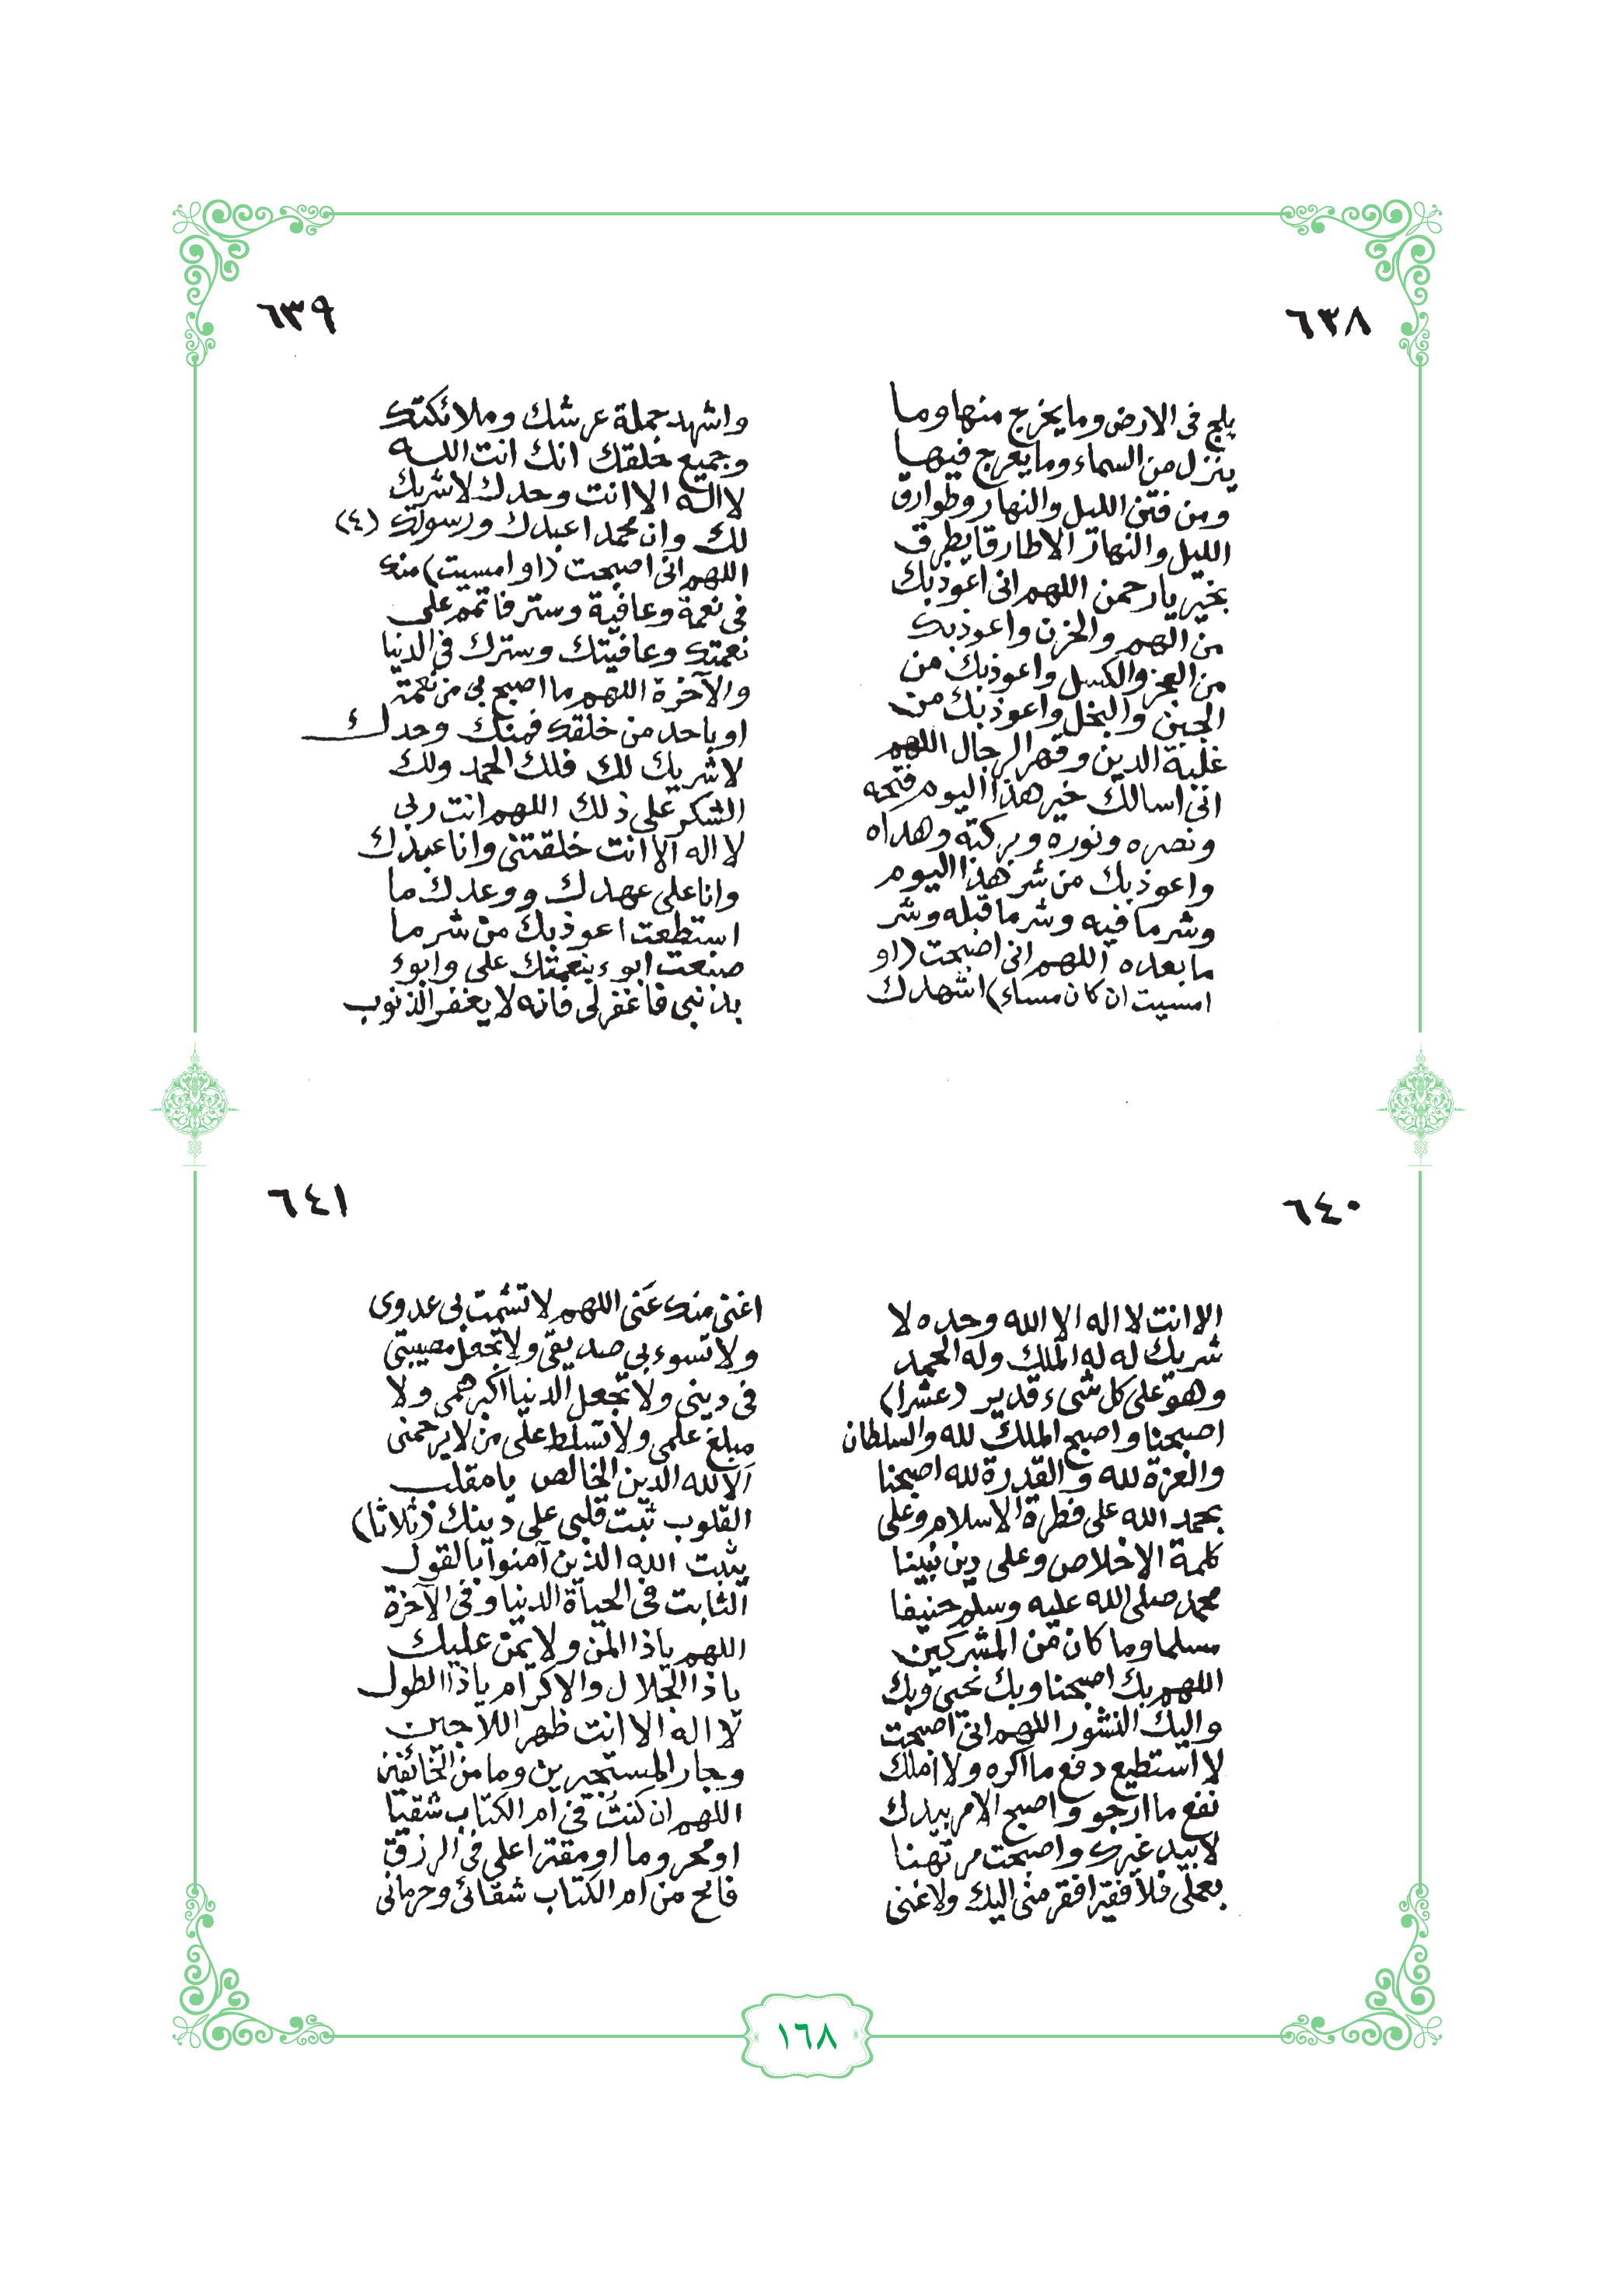 ٦٣٨
يلج فى الارض وما يخرج منها وما
ينزل من السماء وما يعرج فيها
ومن فتن الليل والنهار وطوارق
الليل والنهار الا طارقا يطرق
بخير يا رحمن اللهم انى اعوذ بك
من الهم والحزن واعوذ بك
من العجز والكسل واعوذ بك من
الجبن والبخل واعوذ بك من
غلبة الدين وقهر الرجال اللهم
انى اسالك خير هذا اليوم فتحه
ونصره ونوره وبركته وهداه
واعوذ بك من شر هذا اليوم
وشر ما فيه وشر ما قبله وشر
ما بعده اللهم انى اصبحت (او
امسيت ان كان مساء) اشهدك
٦٣٩
واشهد حملة عرشك وملائكتك
وجميع خلقك انك انت الله
لا اله الا انت وحدك لا شريك
لك وان محمدا عبدك ورسولك (٤)
اللهم انى اصبحت (او امسيت) منك
فى نعمة وعافية وستر فاتمم على
نعمتك وعافيتك وسترك فى الدنيا
والآخرة اللهم ما اصبح بى من نعمة
او باحد من خلقك فمنك وحدك
لا شريك لك فلك الحمد ولك
الشكر على ذلك اللهم انت ربى
لا اله الا انت خلقتنى وانا عبدك
وانا على عهدك ووعدك ما
استطعت اعوذ بك من شر ما
صنعت ابوء بنعمتك على وابوء
بذنبى فاغفر لى فانه لا يغفر الذنوب
٦٤٠
الا انت لا اله الا الله وحده لا
شريك له له الملك وله الحمد
وهو على كل شىء قدير (عشرا)
اصبحنا واصبح الملك لله والسلطان
والعزة لله والقدرة لله اصبحنا
بحمد الله على فطرة الاسلام وعلى
كلمة الاخلاص وعلى دين نبينا
محمد صلى الله عليه وسلم حنيفا
مسلما وما كان من المشركين
اللهم بك اصبحنا وبك نحيى وبك
واليك النشور اللهم انى اصبحت
لا استطيع دفع ما اكره ولا املك
نفع ما ارجو واصبح الامر بيدك
لا بيد غيرك واصبحت مرتهنا
بعملى فلا فقير افقر منى اليك ولا غنى
٦٤١
اغنى منك عنى اللهم لا تشمت بى عدوى
ولا تسوء بى صديقى ولا تجعل مصيبتى
فى دينى ولا تجعل الدنيا اكبر همى ولا
مبلغ علمى ولا تسلط على من لا يرحمنى
الا لله الدين الخالص يا مقلب
القلوب ثبت قلبى على دينك (ثلاثا)
يثبت الله الذين آمنوا بالقول
الثابت فى الحياة الدنيا وفى الآخرة
اللهم يا ذا المن ولا يمن عليك
يا ذا الجلال والاكرام يا ذا الطول
لا اله الا انت ظهر اللاجين
وجار المستجيرين ومامن الخائفين
اللهم ان كنت فى ام الكتاب شقيا
او محروما او مقترا على فى الرزق
فامح من ام الكتاب شقائى وحرمانى
١٦٨